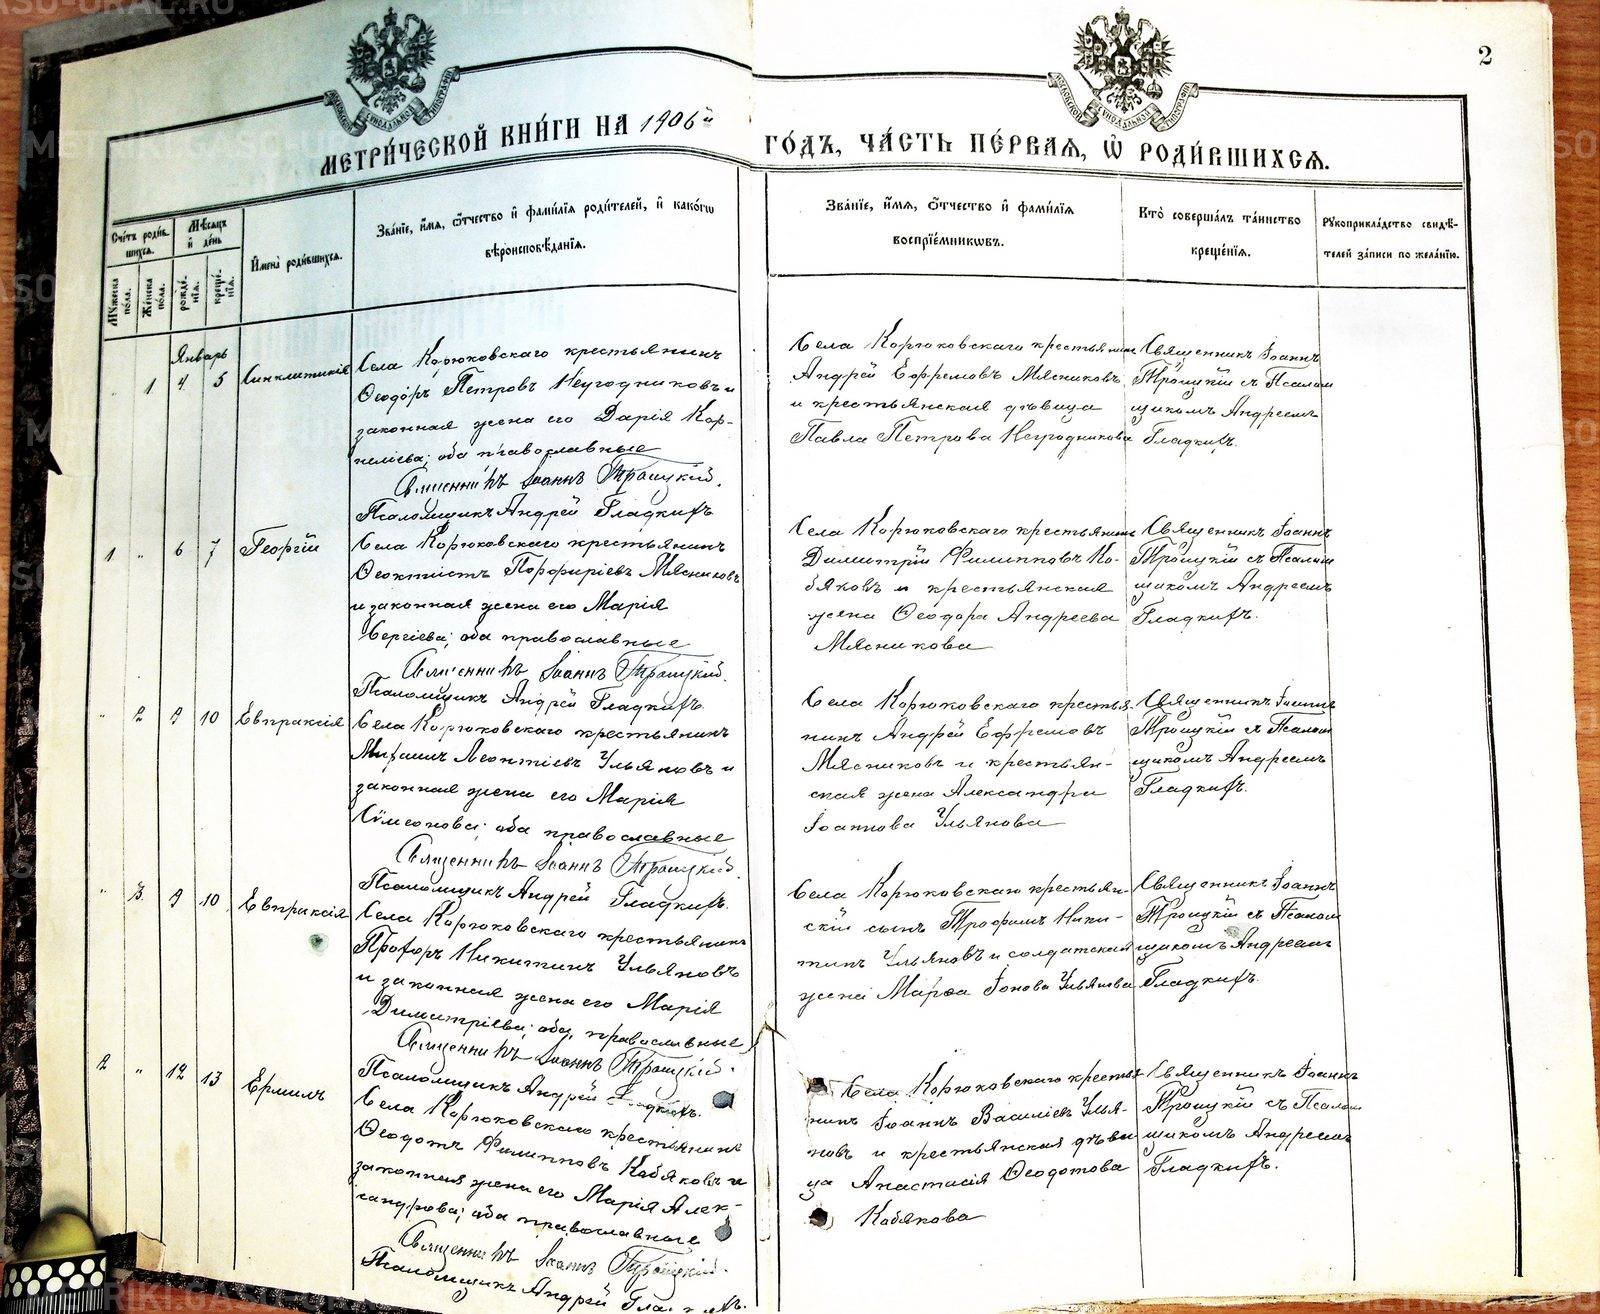 2
МЕТРИ́ЧЕСКОЙ КНИ́ГИ НА 1906й ГО́ДЪ, ЧА́СТЬ ПЕ́РВАЯ, Ѡ РОДИ́ВШИХСЯ.
Сче́тъ роди́вшихся.
Мѣ́сяцъ и҆ де́нь
Му́жеска по́ла.
Же́нска по́ла.
рожде́нїѧ.
креще́нїѧ.
И҆мена̀ роди́вшихся.
Зва́нїе, и҆́мѧ, ѻ҆́тчество и҆ фами́лїѧ роди́телей, и҆ како́гѡ
вѣроисповѣ́данїѧ.
Зва́нїе, и҆́мѧ, ѻ҆́тчество и҆ фами́лїѧ
воспрїе́мникѡвъ.
Кто̀ соверша́лъ та́инство
креще́нїѧ.
Рꙋкоприкла́дство свидѣ́-
телей за́писи по жела́нїю.
Январь
" 1 4 5 Синклитикія
Села Корюковскаго крестьянинъ
Ѳеодоръ Петровъ Негодниковъ и
законная жена его Дарія Кор-
неліева; оба православные
Священникъ Іоаннъ Троицкій.
Псаломщикъ Андрей Гладкихъ
Села Корюковскаго крестьянинъ
Андрей Ефремовъ Мясниковъ
и крестьянская дѣвица
Павла Петрова Негодникова
Священникъ Іоаннъ
Троицкій съ Псалом
щикомъ Андреемъ
Гладкихъ.
1 " 6 7 Георгій
Села Корюковскаго крестьянинъ
Ѳеоктистъ Порфиріевъ Мясниковъ
и законная жена его Марія
Сергіева; оба православные
Священникъ Іоаннъ Троицкій.
Псаломщикъ Андрей Гладкихъ
Села Корюковскаго крестьянинъ
Димитрій Филипповъ Ко-
бяковъ и крестьянская
жена Ѳеодора Андреева
Мясникова
Священникъ Іоаннъ
Троицкій съ Псалом
щикомъ Андреемъ
Гладкихъ.
" 2 9 10 Евпраксія
Села Корюковскаго крестьянинъ
Михаилъ Леонтіевъ Ульяновъ и
законная жена его Марія
Сѵмеонова; оба православные
Священникъ Іоаннъ Троицкій.
Псаломщикъ Андрей Гладкихъ.
Села Корюковскаго крестья-
нинъ Андрей Ефремовъ
Мясниковъ и крестьян-
ская жена Александра
Іоаннова Ульянова
Священникъ Іоаннъ
Троицкій съ Псалом
щикомъ Андреемъ
Гладкихъ.
" 3 9 10 Евпраксія
Села Корюковскаго крестьянинъ
Прохоръ Никитинъ Ульяновъ
и законная жена его Марія
Димитріева; оба православные
Священникъ Іоаннъ Троицкій.
Псаломщикъ Андрей Гладкихъ.
Села Корюковскаго крестьян-
скій сынъ Трофимъ Ники-
тинъ Ульяновъ и солдатская
жена Марѳа Іонова Ульянова
Священникъ Іоаннъ
Троицкій съ Псалом
щикомъ Андреемъ
Гладкихъ.
2 " 12 13 Ермилъ
Села Корюковскаго крестьянинъ
Ѳеодотъ Филипповъ Кобяковъ и
законная жена его Марія Алек-
сандрова; оба православные
Священникъ Іоаннъ Троицкій.
Псаломщикъ Андрей Гладкихъ.
Села Корюковскаго крестья-
нинъ Іоаннъ Василіевъ Улья-
новъ и крестьянская дѣви
ца Анастасія Ѳеодотова
Кобякова
Священникъ Іоаннъ
Троицкій съ Псалом
щикомъ Андреемъ
Гладкихъ.